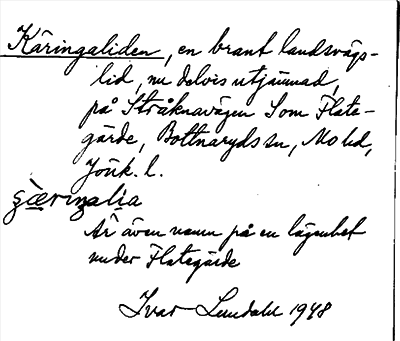 Käringaliden, en brant landsvägs-
lid, nu delvis utjämnad,
på Stråknavägen Som Flate-
gärde, Bottnaryds sn, Mo hd,
Jönk. l.
çæriŋalia
Är även namn på en lägenhet
under Flategärde
Ivar Lundahl 1948